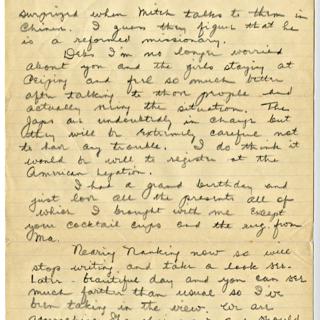 surprized when Mitch talks to them in
Chinese. I guess they figur that he
is a reformed missionary.
Debs I'm no longer worried
about you and the girls staying at
Peiping and feel so much better
after talking to those people and
actually the situation. The
Japs are undoubtedly in charge but
they will be extremly careful not
to have any trouble. I do think it
would be well to register at the
American Legation.
I had a grand birthday and
just love all the presents all of
which I brought with me except
your cocktail cups and the rug from
Ma.
Nearing Nanking now so will
stop writing and take a look see.
Later - beautiful day and you can see
much farther than usual so I've
been taking in the view. We are
should